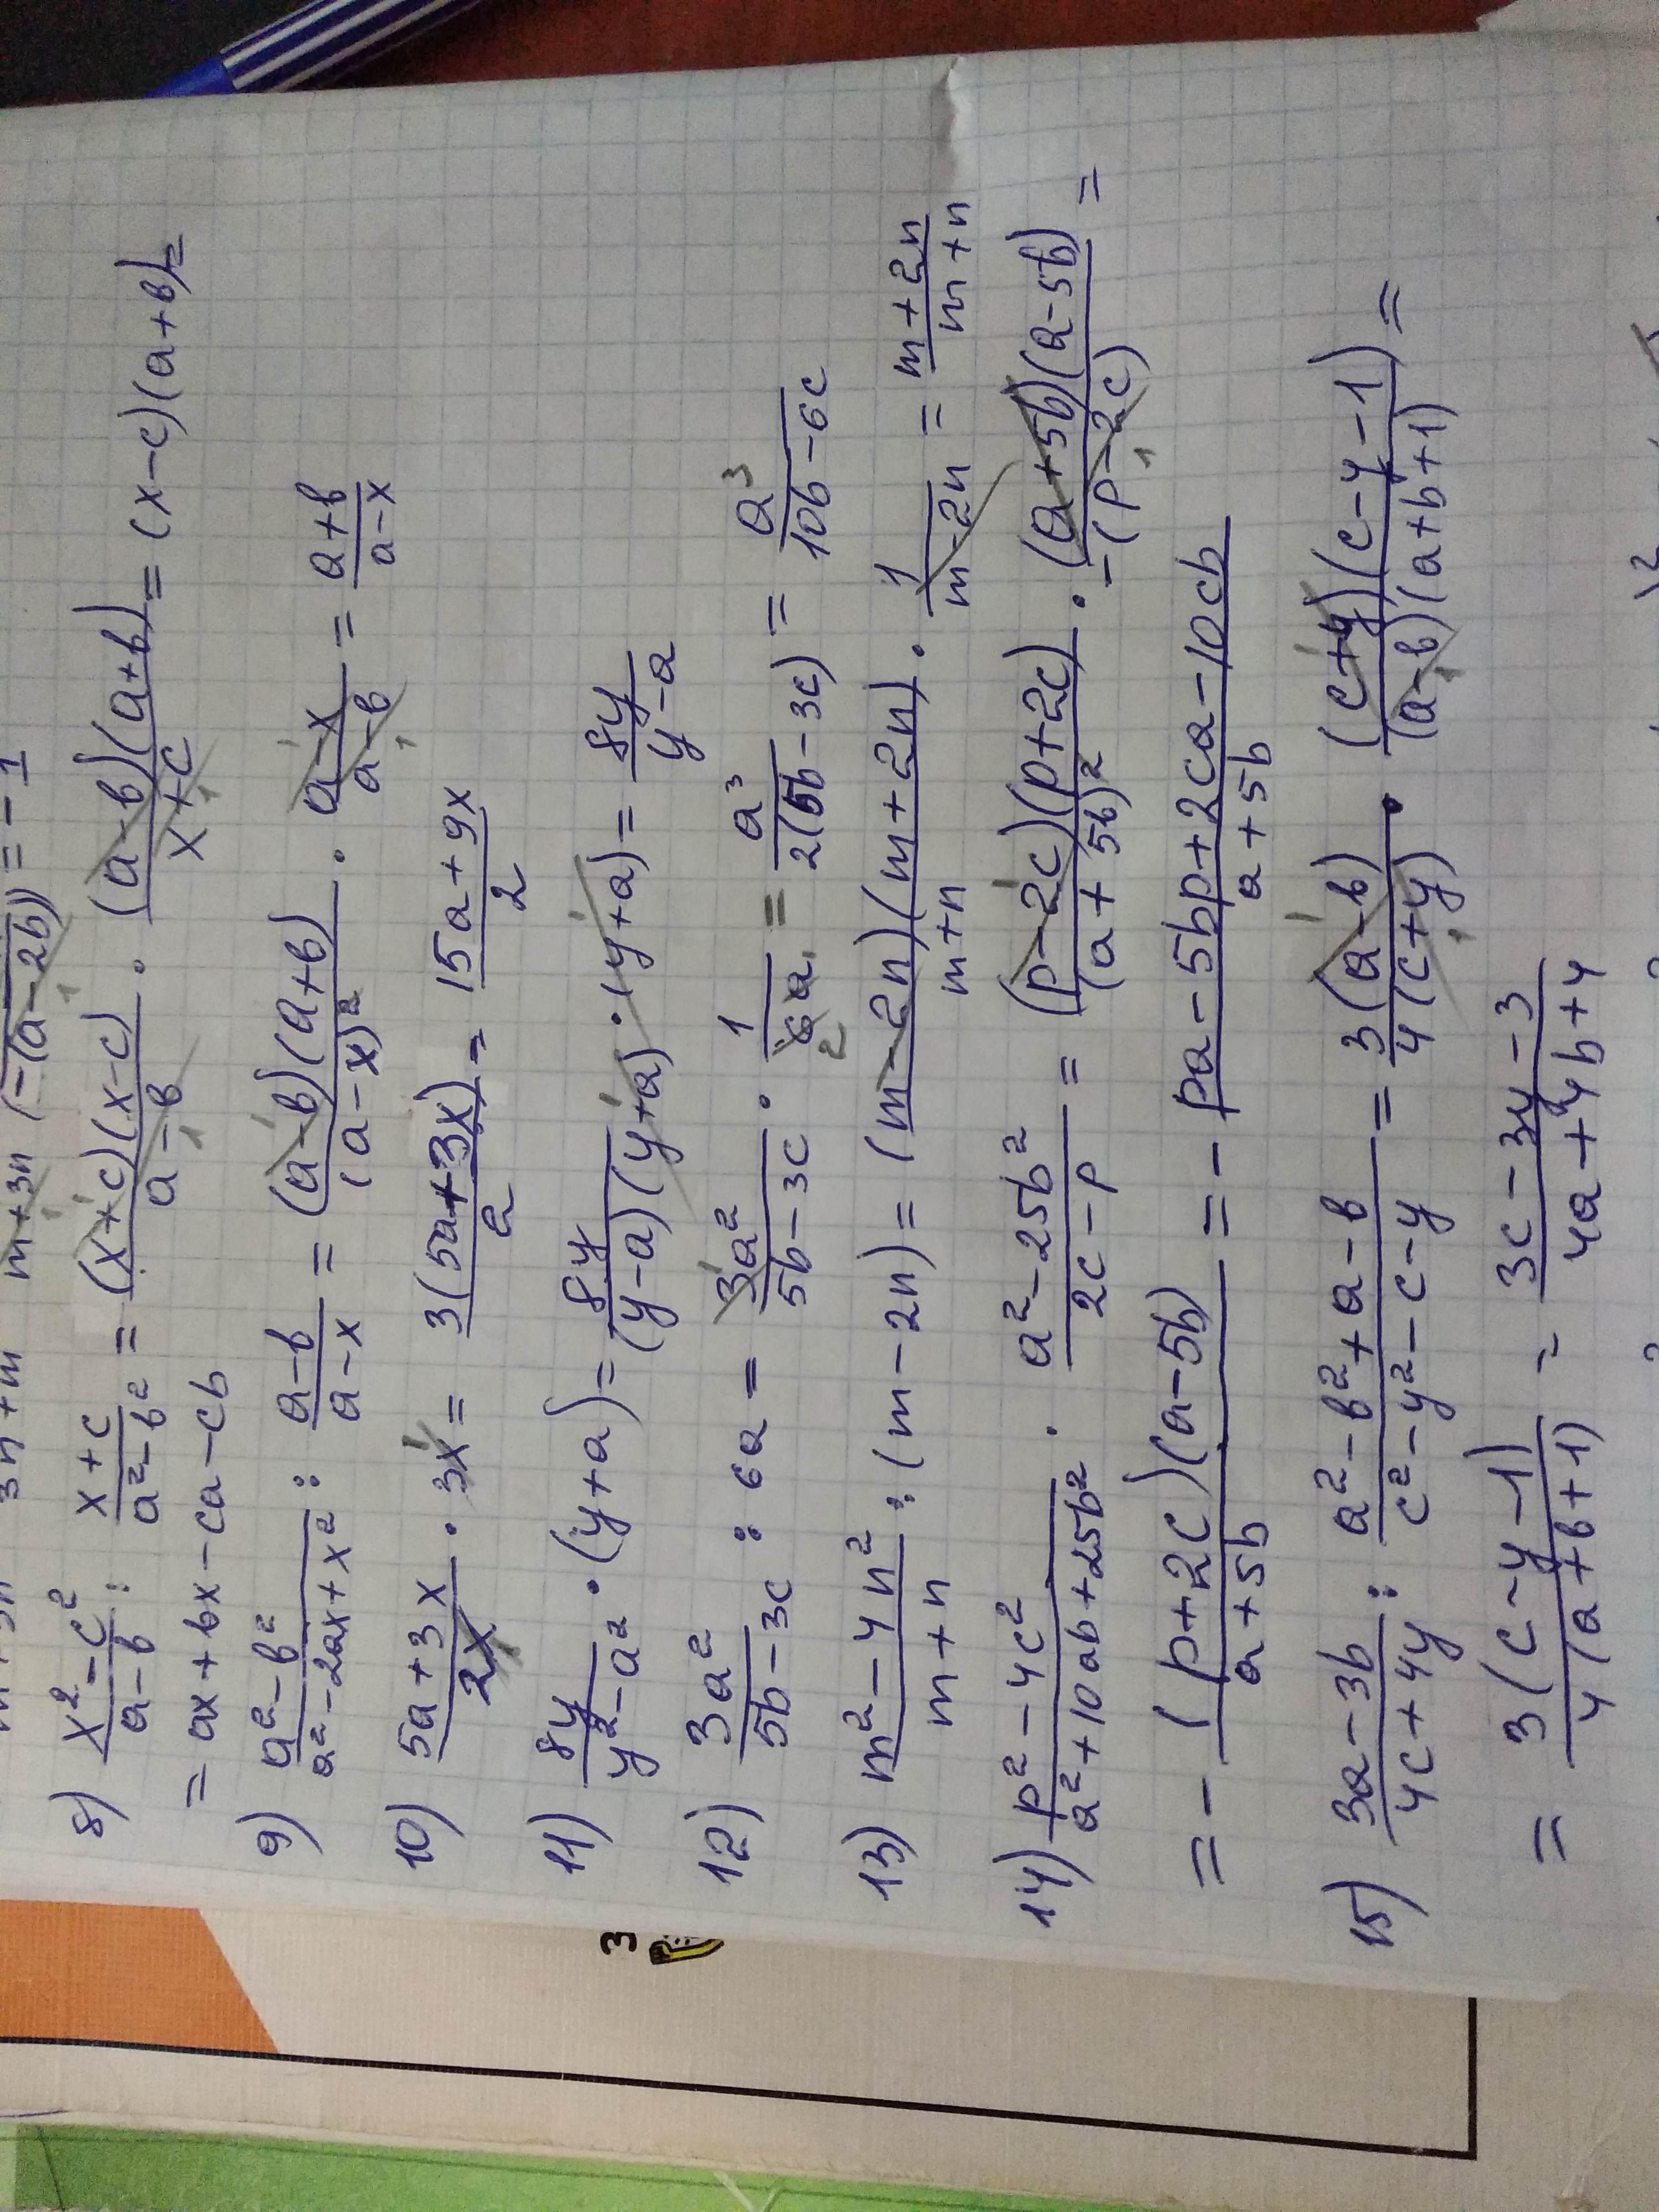 m+3n (-(a-2b)) = -1
8) (x²-c²)/(a-b) : (x+c)/(a²-b²) = ((x+c)(x-c))/(a-b) · ((a-b)(a+b))/(x+c) = (x-c)(a+b) =
= ax+bx-ca-cb
9) (a²-b²)/(a²-2ax+x²) : (a-b)/(a-x) = ((a-b)(a+b))/(a-x)² · (a-x)/(a-b) = (a+b)/(a-x)
10) (5a+3x)/(2x) · 3x = (3(5a+3x))/2 = (15a+9x)/2
11) 8y/(y²-a²) · (y+a) = 8y/((y-a)(y+a)) · (y+a) = 8y/(y-a)
12) 3a²/(5b-3c) : 6a = 3a²/(5b-3c) · 1/(6a) = a³/(2(5b-3c)) = a³/(10b-6c)
13) (m²-4n²)/(m+n) : (m-2n) = ((m-2n)(m+2n))/(m+n) · 1/(m-2n) = (m+2n)/(m+n)
14) (p²-4c²)/(a²+10ab+25b²) · (a²-25b²)/(2c-p) = ((p-2c)(p+2c))/(a+5b)² · ((a+5b)(a-5b))/(-(p-2c)) =
= - ((p+2c)(a-5b))/(a+5b) = - (pa-5bp+2ca-10cb)/(a+5b)
15) (3a-3b)/(4c+4y) : (a²-b²+a-b)/(c²-y²-c-y) = (3(a-b))/(4(c+y)) · ((c+y)(c-y-1))/((a-b)(a+b+1)) =
= (3(c-y-1))/(4(a+b+1)) = (3c-3y-3)/(4a+4b+4)
3